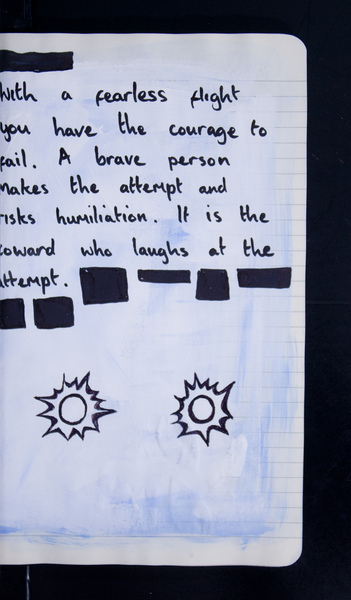 with a fearless flight
you have the courage to
fail. A brave person
makes the attempt and
risks humiliation. It is the
coward who laughs at the
attempt.